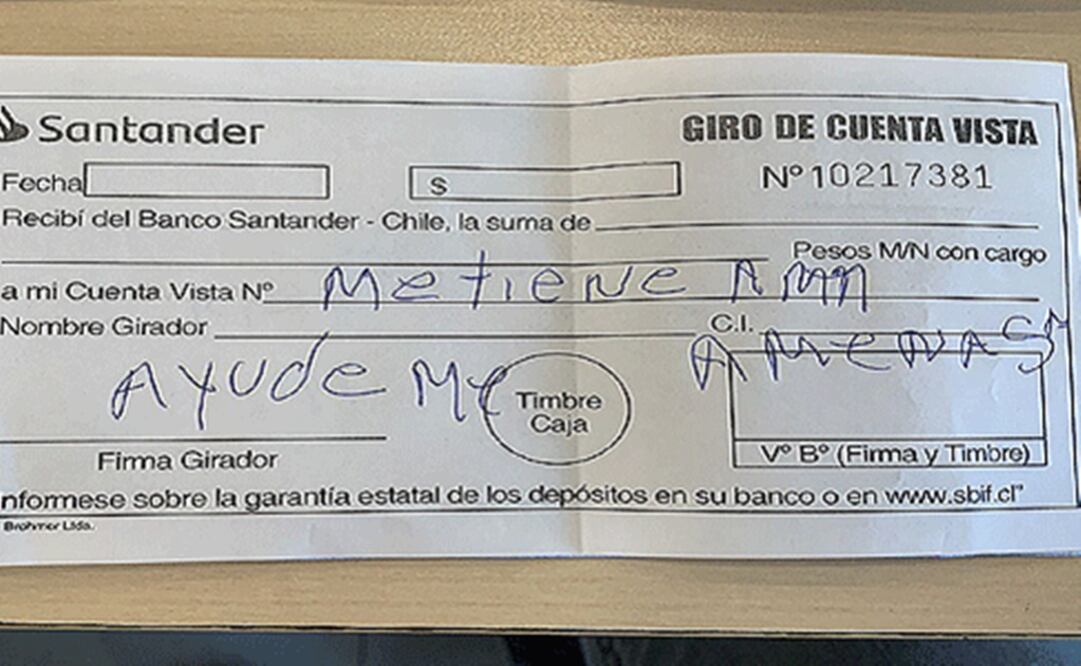 Santander
GIRO DE CUENTA VISTA
Fecha
$
Nº 10217381
Recibí del Banco Santander - Chile, la suma de
Pesos M/N con cargo
a mi Cuenta Vista Nº Me tiene A
Nombre Girador
C.I.
Ayude Me
AMENAS
Timbre
Caja
Firma Girador
Vº Bº (Firma y Timbre)
nformese sobre la garantía estatal de los depósitos en su banco o en www.sbif.cl"
Brohmer Ltda.